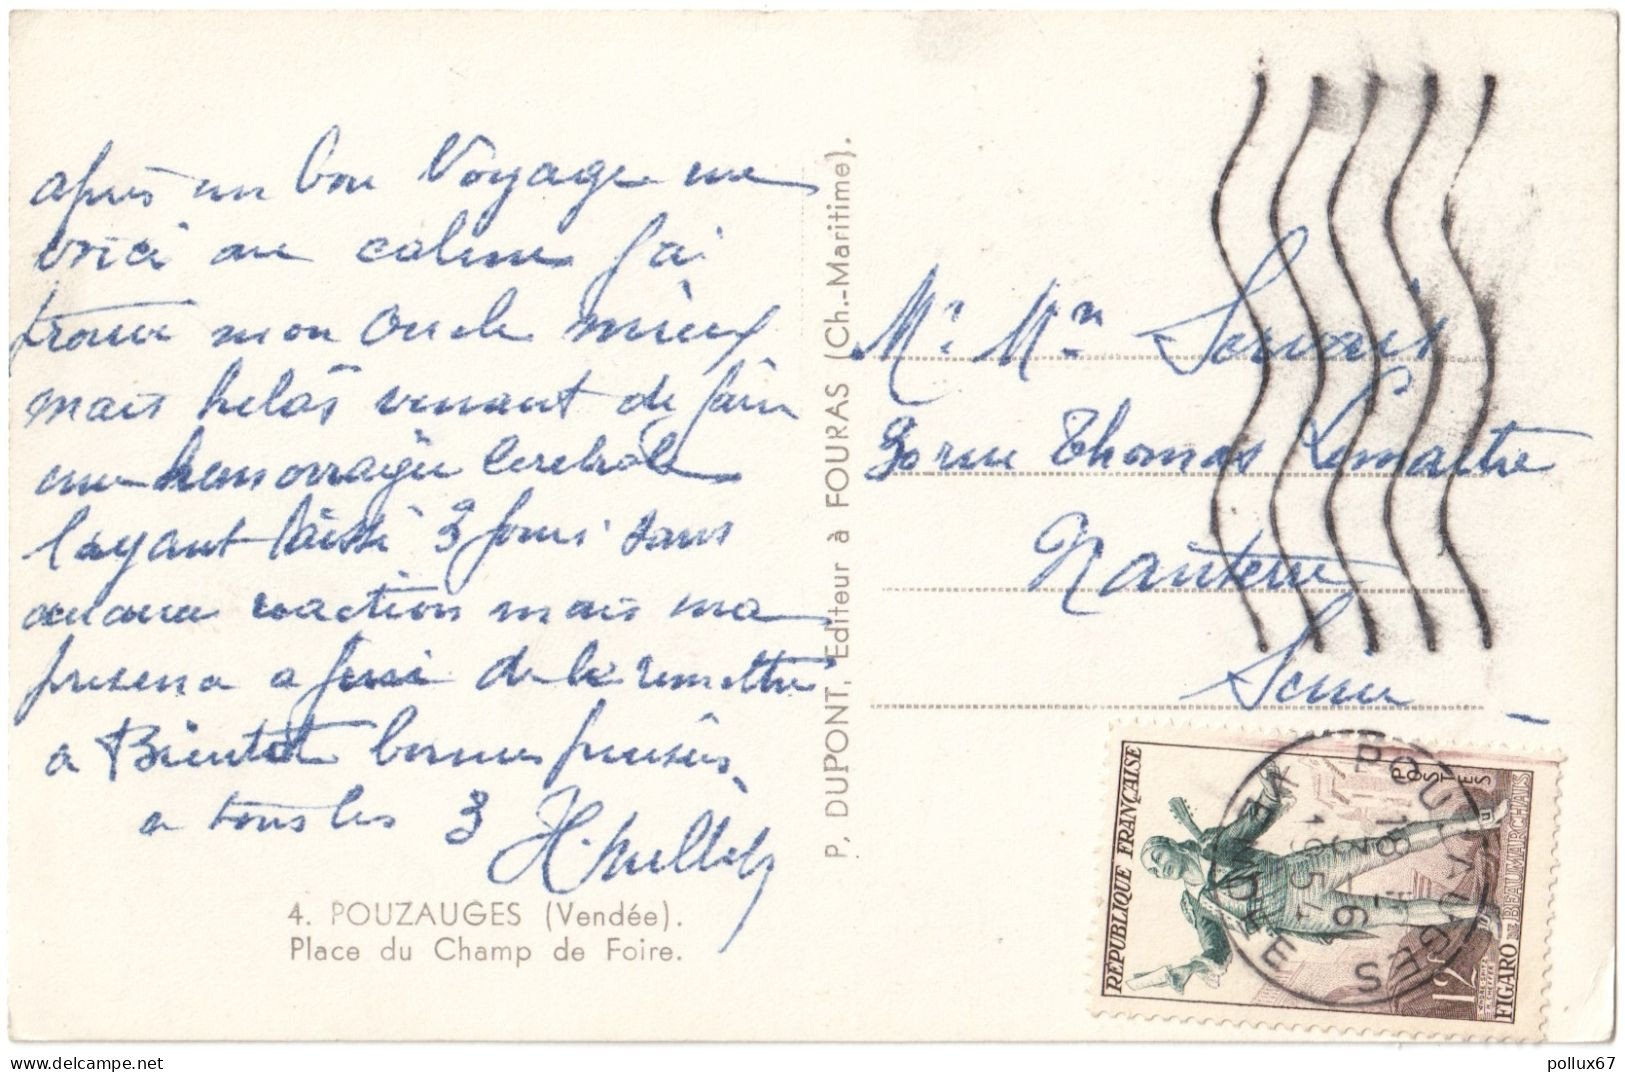 après un bon Voyage me
voici au calme j'ai
trouvé mon Oncle mieux
mais helas venant de faire
une hemorragie Cerebrale
l'ayant laissé 3 jours sans
aucune reaction mais ma
presence a de le remettre
a Bientot bonnes pensées
a tous les 3
4. POUZAUGES (Vendée).
Place du Champ de Foire.
P. DUPONT, Editeur à FOURAS (Ch.-Maritime).
Mr Mme Servais
30 rue Thomas Lemaitre
Nanterre
Seine
RÉPUBLIQUE FRANÇAISE
POSTES
12F
FIGARO DE BEAUMARCHAIS
POUZAUGES
VENDÉE
1954
www.delcampe.net
pollux67